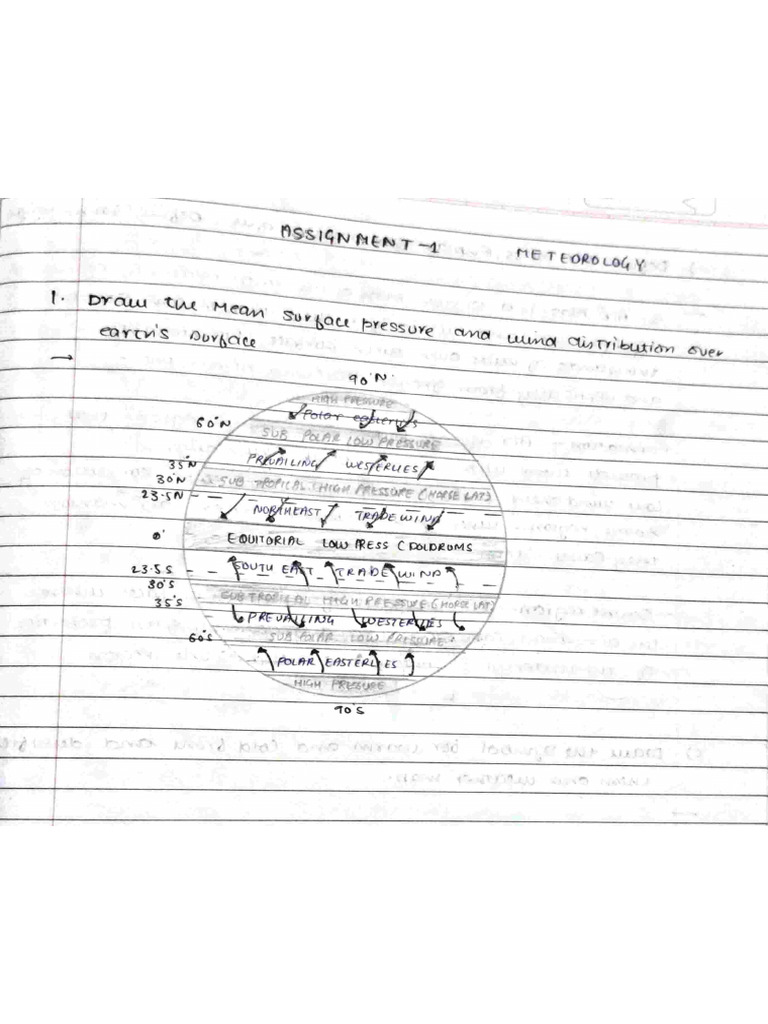 ASSIGNMENT-1 METEOROLOGY
1. Draw the Mean surface pressure and wind distribution over
earth's surface
→
90°N
HIGH PRESSURE
60°N Polar easterlies
SUB POLAR LOW PRESSURE
35°N PREVAILING WESTERLIES
30°N SUB TROPICAL HIGH PRESSURE (HORSE LAT)
23.5N NORTHEAST TRADE WIND
0° EQUITORIAL LOW PRESS (DOLDRUMS
23.5S SOUTH EAST TRADE WIND
30°S SUB TROPICAL HIGH PRESSURE (HORSE LAT)
35°S PREVAILING WESTERLIES
60°S SUB POLAR LOW PRESSURE
POLAR EASTERLIES
HIGH PRESSURE
90°S